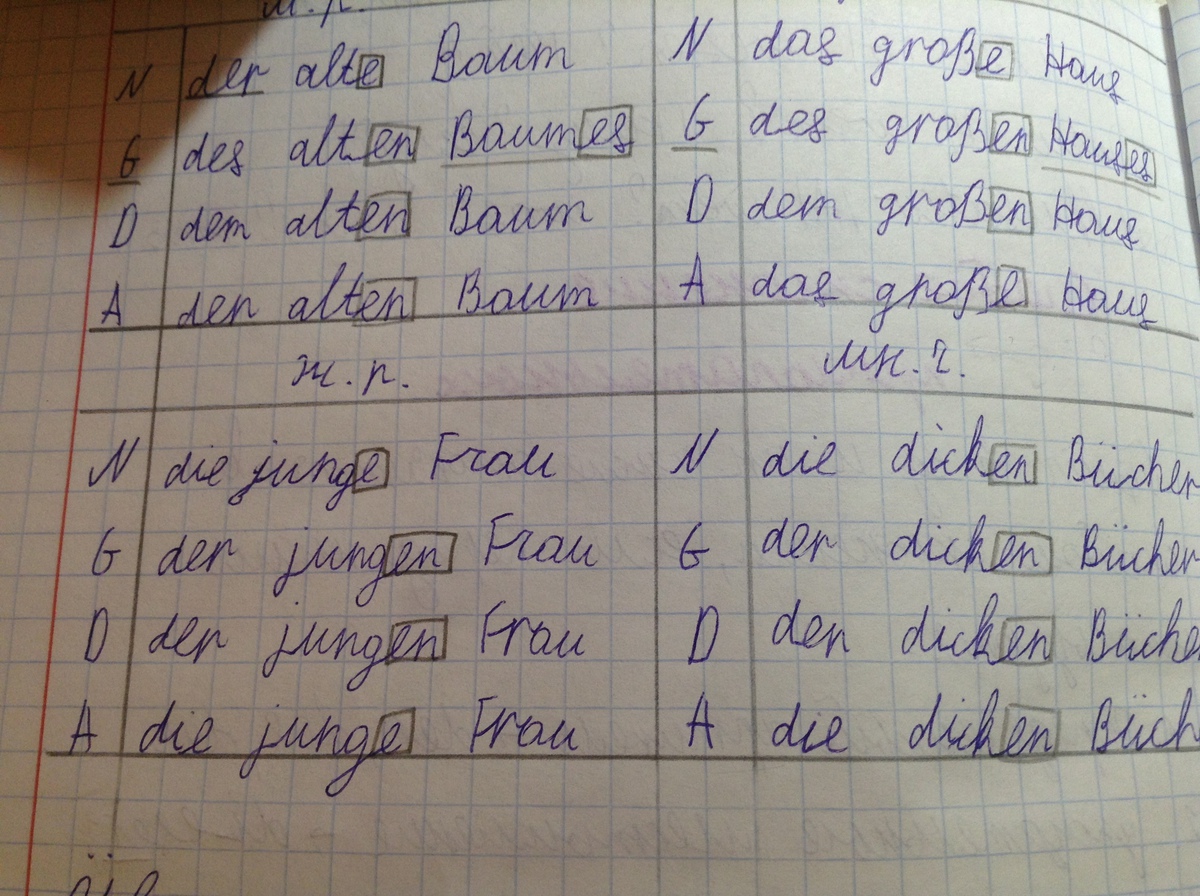 м.р.
N der alte Baum N das große Haus
G des alten Baumes G des großen Hauses
D dem alten Baum D dem großen Haus
A den alten Baum A das große Haus
ж.р. мн.ч.
N die junge Frau N die dicken Bücher
G der jungen Frau G der dicken Bücher
D der jungen Frau D den dicken Büche
A die junge Frau A die dicken Büch